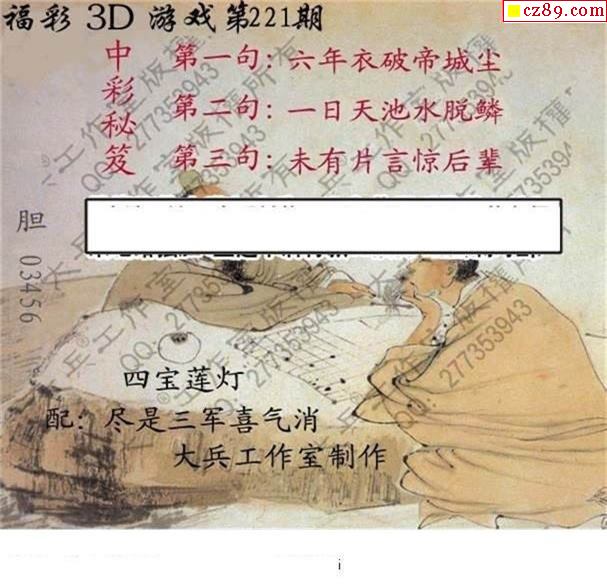 福彩 3D 游戏第221期
cz89.com
中彩秘笈
第一句：六年衣破帝城尘
第二句：一日天池水脱鳞
第三句：未有片言惊后辈
胆 03456
四宝莲灯
配：尽是三军喜气消
大兵工作室制作
大兵工作室版权所有
QQ:277353943
i